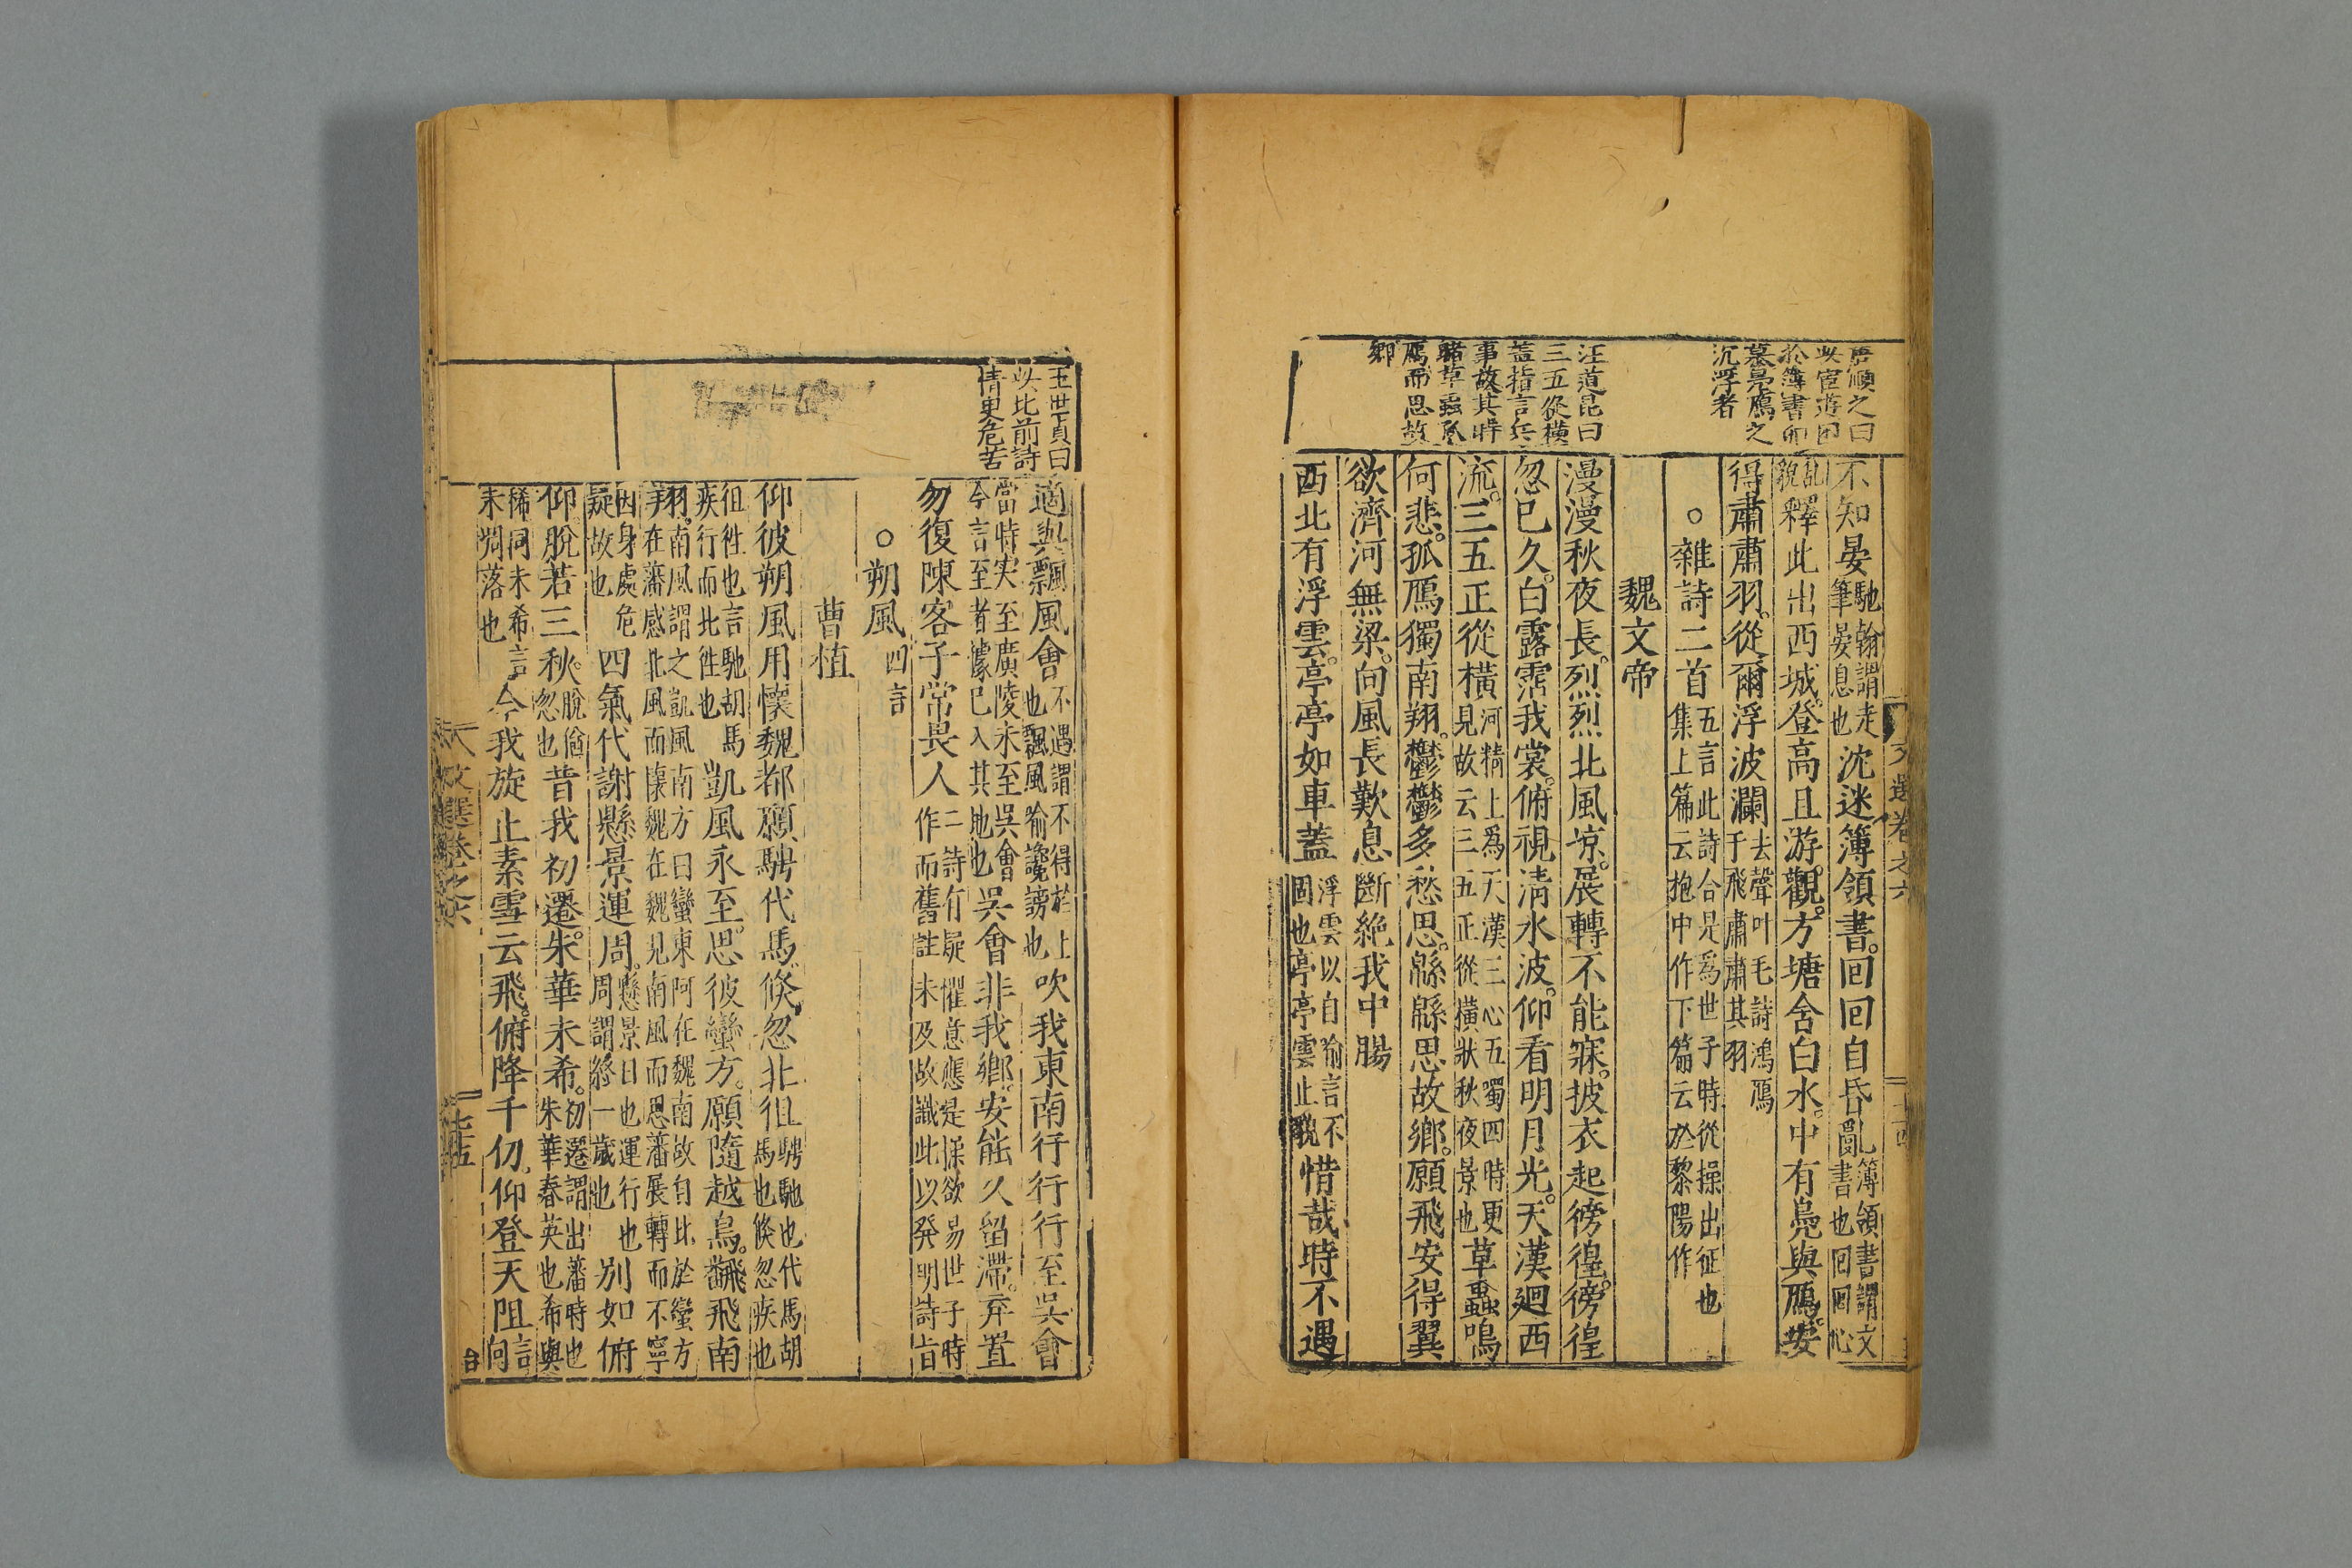 唐順之曰
此宦遊困
於簿書而
慕鳧鴈之
沉浮者
汪道昆曰
三五從横
葢指言兵
事故其時
賭草虫孤
鴈而思故
鄉
不知晏馳翰謂走筆晏息也沈迷簿領書回回自昏亂簿領書謂文書也回回心
亂貌釋此出西城登高且游觀方塘含白水中有鳧與鴈安
得肅肅羽從爾浮波瀾去聲叶毛詩鴻鴈于飛肅肅其羽
○雜詩二首五言此詩合是為世子時從操出征也集上篇云抱中作下篇云於黎陽作
魏文帝
漫漫秋夜長烈烈北風凉展轉不能寐披衣起徬徨徬徨
忽已久白露霑我裳俯視清水波仰看明月光天漢廻西
流三五正從橫河精上為天漢三心五噣四時更見故云三五正從橫狀秋夜景也草蟲鳴
何悲孤鴈獨南翔鬱鬱多愁思緜緜思故鄉願飛安得翼
欲濟河無梁向風長歎息斷絶我中腸
西北有浮雲亭亭如車蓋浮雲以自喻言不固也亭亭雲止貌惜哉時不遇
文選卷之六
十四
王世貞曰
此比前詩
情更危苦
適與飄風會不遇謂不得於上也飄風喻讒謗也吹我東南行行行至吳會
當時实至廣陵未至吳會今言至者據已入其地也吳會非我鄉安能久留滯弃置
勿復陳客子常畏人二詩有疑懼意應是操欲易世子時作而舊註未及故識此以發明詩旨
○朔風四言
曹植
仰彼朔風用懷魏都願騁代馬倐忽北徂騁馳也代馬胡馬也倐忽疾也
徂徃也言馳胡馬疾行而北徃也凱風永至思彼蠻方願隨越鳥飜飛南
羽南風謂之凱風南方曰蠻東阿在魏南故自比於蠻方羊在藩感北風而懷魏在魏見南風而思藩展轉而不寧
因身處危疑故也四氣代謝懸景運周懸景日也運行也周謂終一歲也別如俯
仰脫若三秋脫偹忽也昔我初遷朱華未希初遷謂出藩時也朱華春英也希與
稀同未希言未凋落也今我旋止素雪云飛俯降千仞仰登天阻言向
文選卷之六
十五